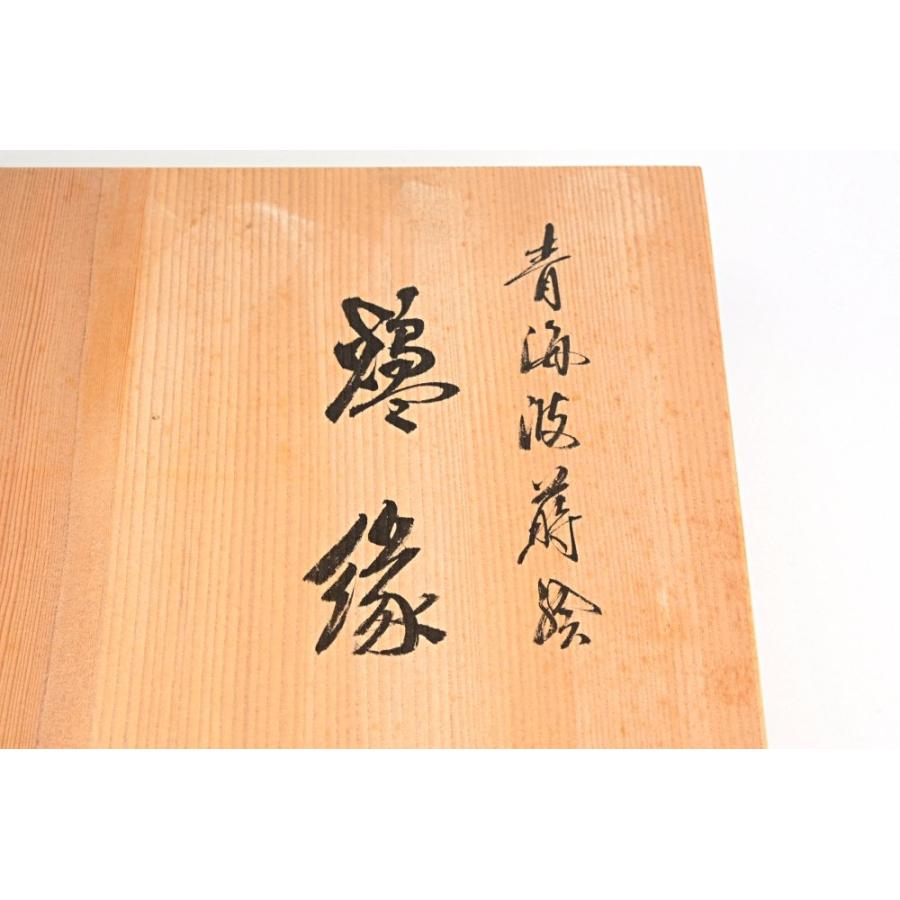 青海波蒔絵
爐縁